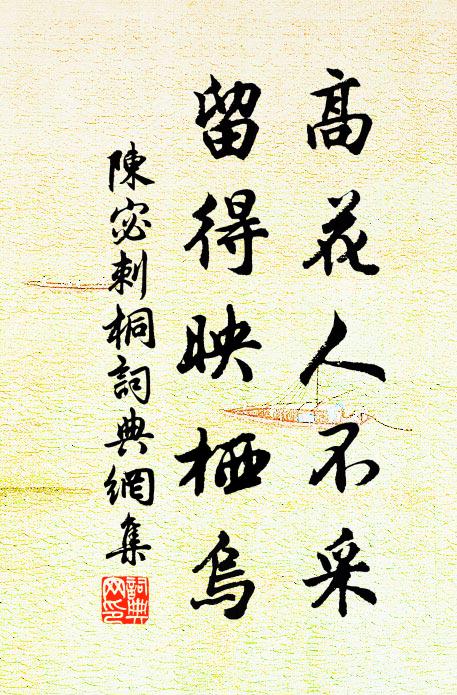 高花人不采
留得映栖烏
陳宓刺桐詞典網集
詞典網印